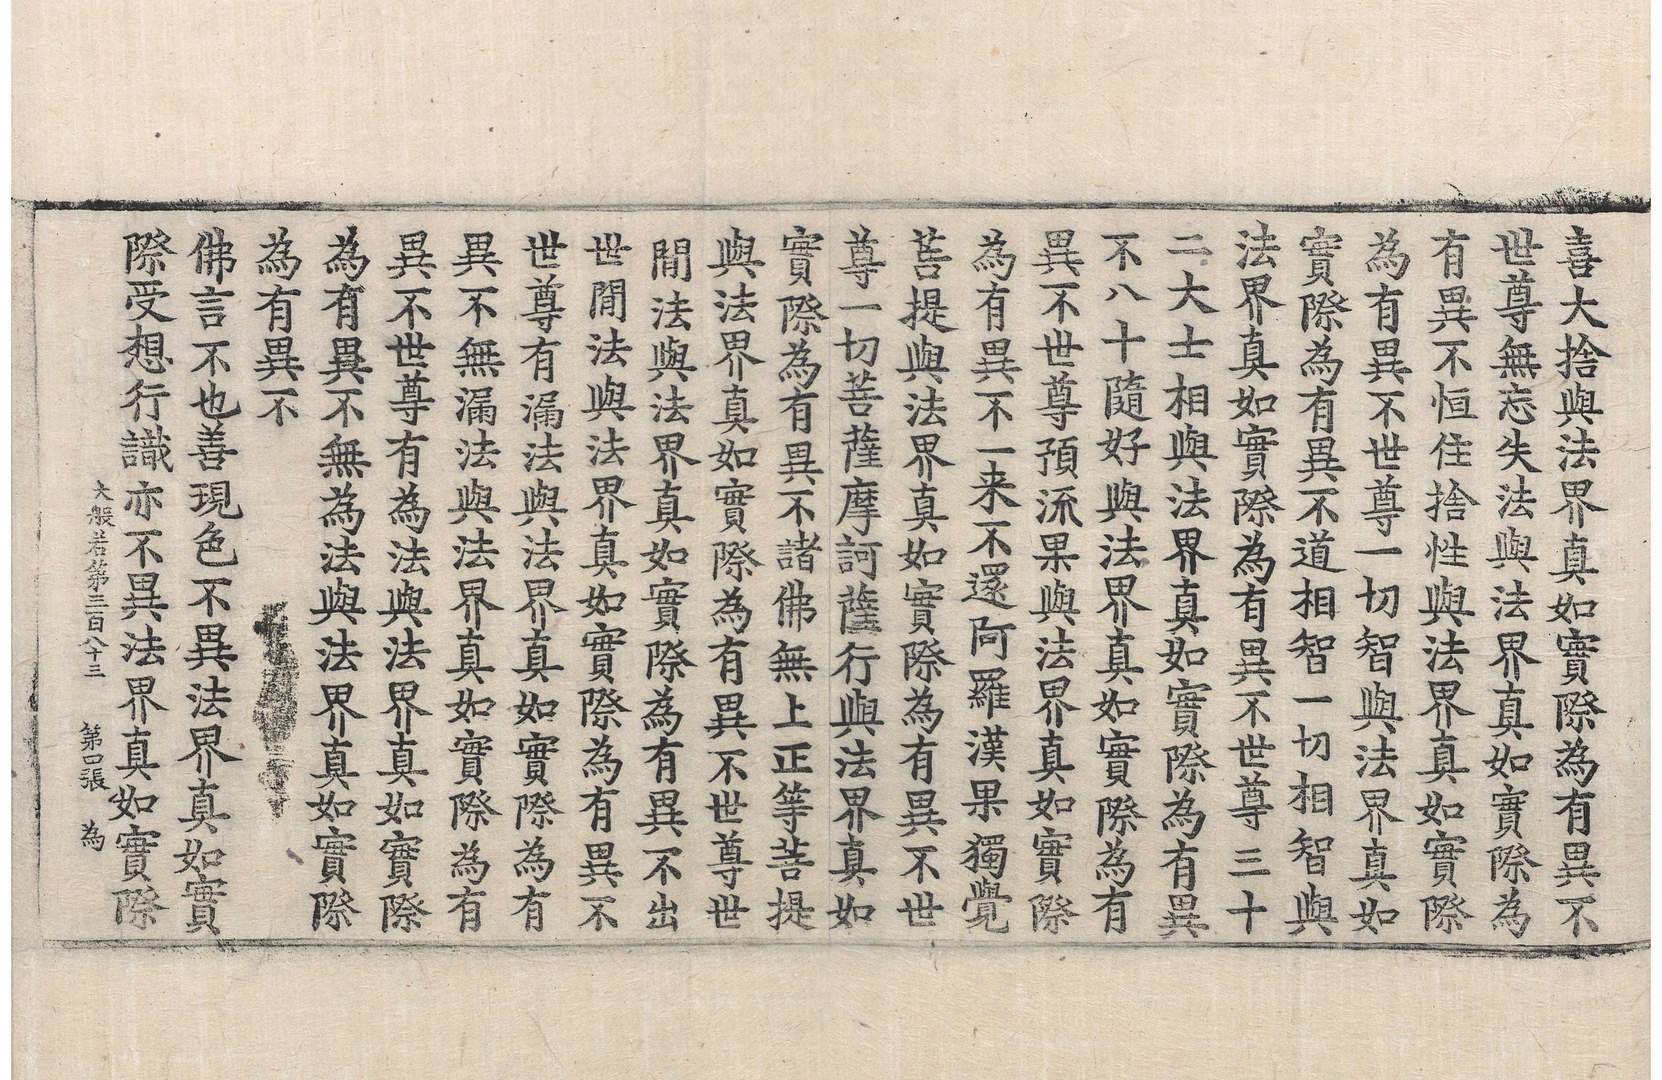 喜大捨與法界真如實際為有異不
世尊無忘失法與法界真如實際為
有異不恒住捨性與法界真如實際
為有異不世尊一切智與法界真如
實際為有異不道相智一切相智與
法界真如實際為有異不世尊三十
二大士相與法界真如實際為有異
不八十隨好與法界真如實際為有
異不世尊預流果與法界真如實際
為有異不一来不還阿羅漢果獨覺
菩提與法界真如實際為有異不世
尊一切菩薩摩訶薩行與法界真如
實際為有異不諸佛無上正等菩提
與法界真如實際為有異不世尊世
間法與法界真如實際為有異不出
世間法與法界真如實際為有異不
世尊有漏法與法界真如實際為有
異不無漏法與法界真如實際為有
異不世尊有為法與法界真如實際
為有異不無為法與法界真如實際
為有異不
佛言不也善現色不異法界真如實
際受想行識亦不異法界真如實際
大般若第三百八十三 第口張 為